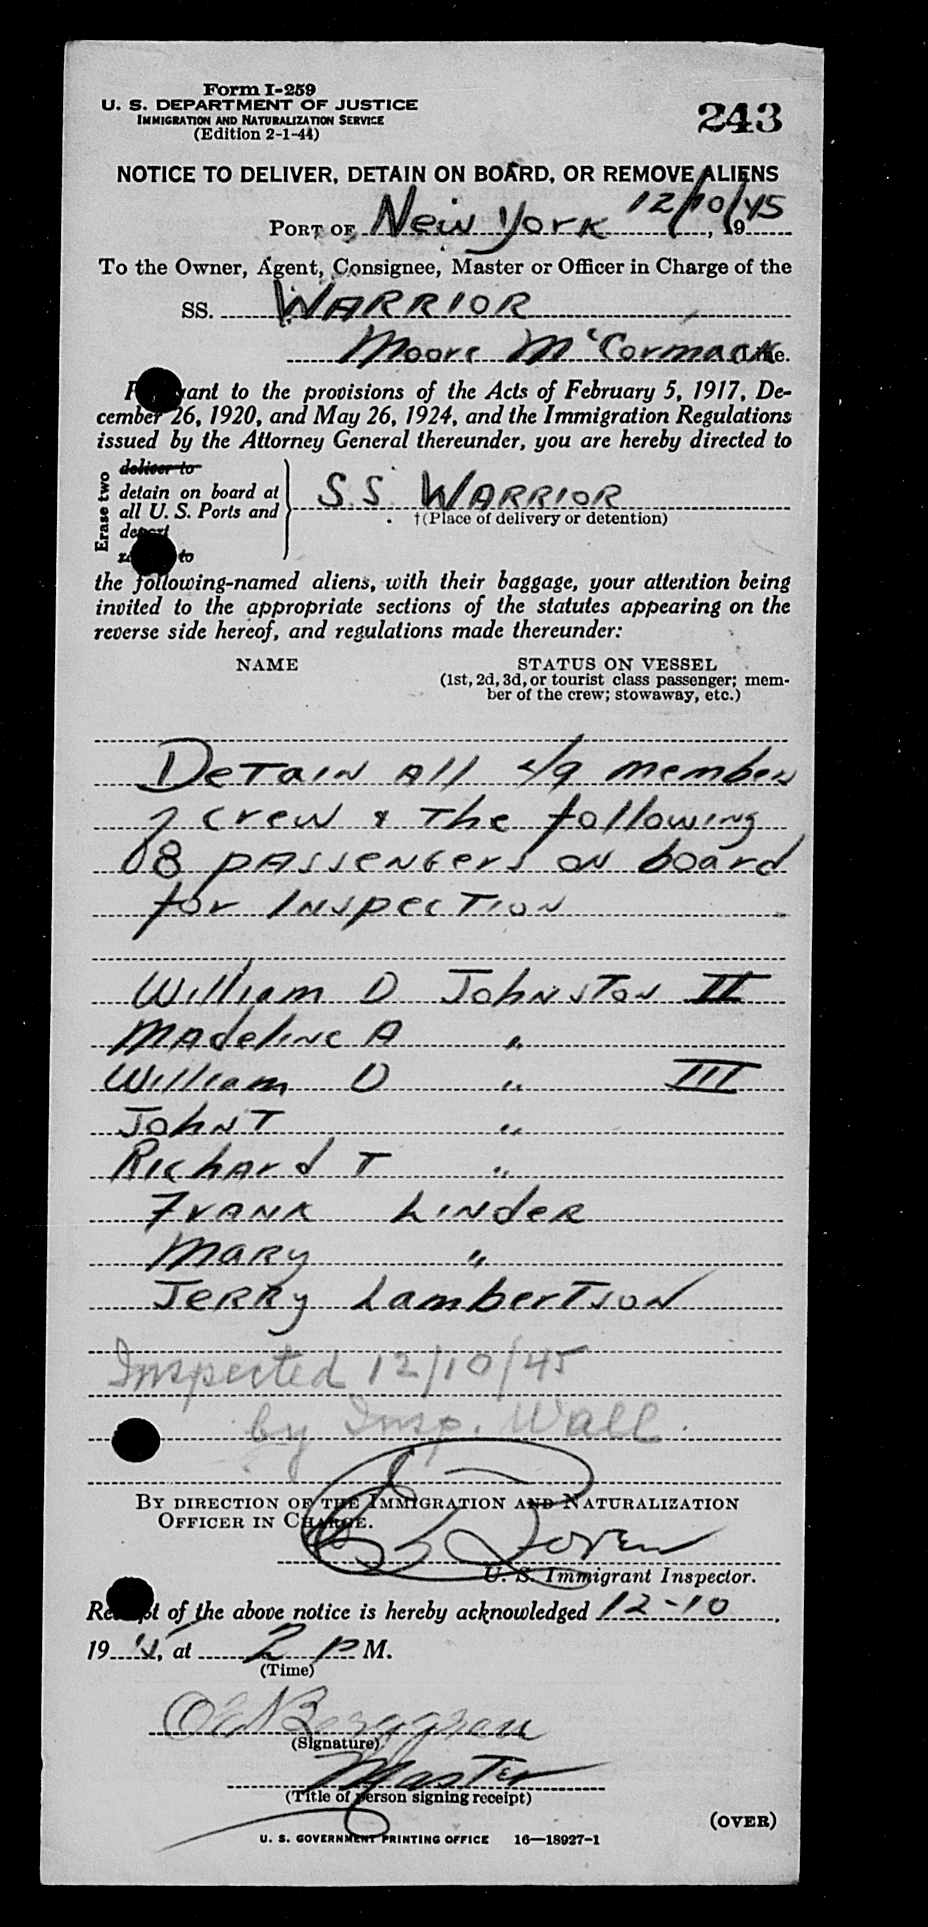 Form I-259
U. S. DEPARTMENT OF JUSTICE
IMMIGRATION AND NATURALIZATION SERVICE
(Edition 2-1-44)
243
NOTICE TO DELIVER, DETAIN ON BOARD, OR REMOVE ALIENS
PORT OF New York 12/10/45, 19
To the Owner, Agent, Consignee, Master or Officer in Charge of the
SS. WARRIOR
Moore McCormack Line.
Pursuant to the provisions of the Acts of February 5, 1917, De-
cember 26, 1920, and May 26, 1924, and the Immigration Regulations
issued by the Attorney General thereunder, you are hereby directed to
Erase two
deliver to
detain on board at
all U. S. Ports and
deport
to
S.S. WARRIOR
†(Place of delivery or detention)
the following-named aliens, with their baggage, your attention being
invited to the appropriate sections of the statutes appearing on the
reverse side hereof, and regulations made thereunder:
NAME
STATUS ON VESSEL
(1st, 2d, 3d, or tourist class passenger; mem-
ber of the crew; stowaway, etc.)
Detain All members
crew & The following
08 passengers on board
for Inspection
William D Johnston II
Madeline A "
William D " III
John T "
Richard T "
Frank Linder
Mary "
Jerry Lambertson
Inspected 12/10/45
by Insp. Wall.
BY DIRECTION OF THE IMMIGRATION AND NATURALIZATION
OFFICER IN CHARGE.
U. S. Immigrant Inspector.
Receipt of the above notice is hereby acknowledged 12-10,
19 45, at 2 P M.
(Time)
(Signature)
Master
(Title of person signing receipt)
(OVER)
U. S. GOVERNMENT PRINTING OFFICE 16—18927-1